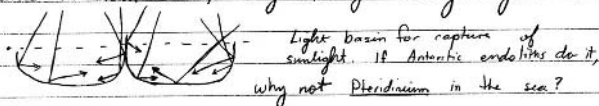 Light basin for capture of
sunlight. If Antarctic endoliths do it,
why not Pteridinium in the sea?